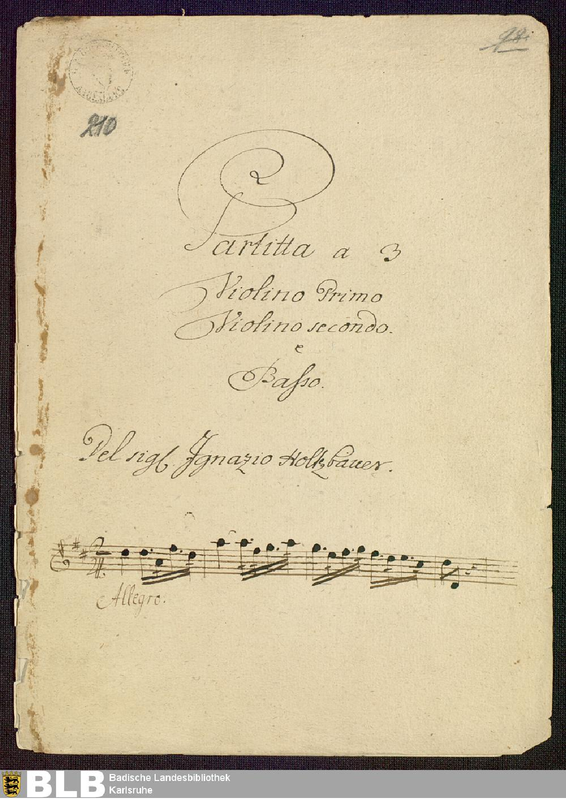 98.
210
Partitta a 3
Violino Primo
Violino secondo.
e
Basso.
Del sigl Ignazio Holtzbauer.
2/4
Allegro.
BLB Badische Landesbibliothek
Karlsruhe